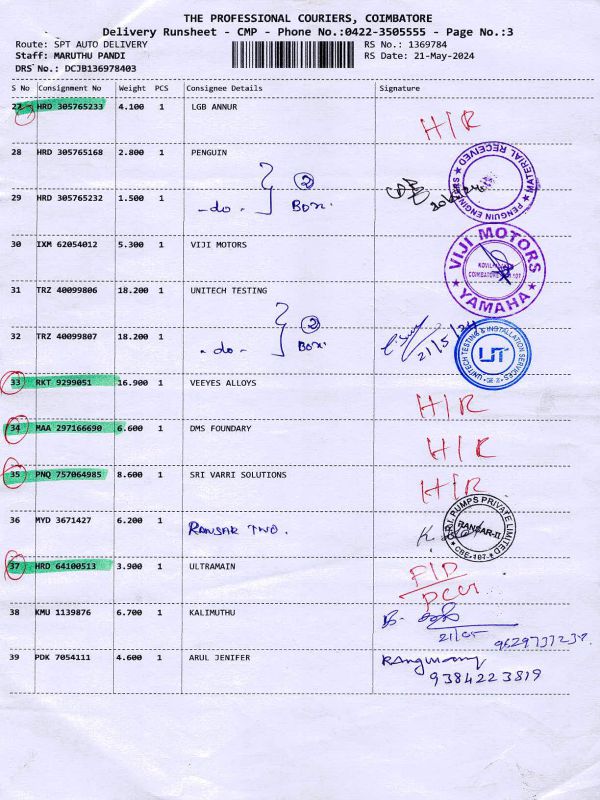 THE PROFESSIONAL COURIERS, COIMBATORE
Delivery Runsheet - CMP - Phone No.:0422-3505555 - Page No.:3
Route: SPT AUTO DELIVERY RS No.: 1369784
Staff: MARUTHU PANDI RS Date: 21-May-2024
DRS No.: DCJB136978403
S No Consignment No Weight PCS Consignee Details Signature
27 HRD 305765233 4.100 1 LGB ANNUR H/R
28 HRD 305765168 2.800 1 PENGUIN
PENGUIN ENGINEERS MATERIAL RECEIVED
29 HRD 305765232 1.500 1 -do- 2 Box.
30 IXM 62054012 5.300 1 VIJI MOTORS
VIJI MOTORS
COIMBATORE
YAMAHA
31 TRZ 40099806 18.200 1 UNITECH TESTING
32 TRZ 40099807 18.200 1 -do- 2 Box. 21/5/24
UNITECH TESTING & INSTALLATION SERVICES
UT
33 RKT 9299051 16.900 1 VEEYES ALLOYS H/R
34 MAA 297166690 6.600 1 DMS FOUNDARY H/R
35 PNQ 757064985 8.600 1 SRI VARRI SOLUTIONS H/R
36 MYD 3671427 6.200 1 RANSAR TWO.
PUMPS PRIVATE LIMITED
RANSAR-II
CBE-107
37 HRD 64100513 3.900 1 ULTRAMAIN
38 KMU 1139876 6.700 1 KALIMUTHU
21/05
39 PDK 7054111 4.600 1 ARUL JENIFER
9384223819